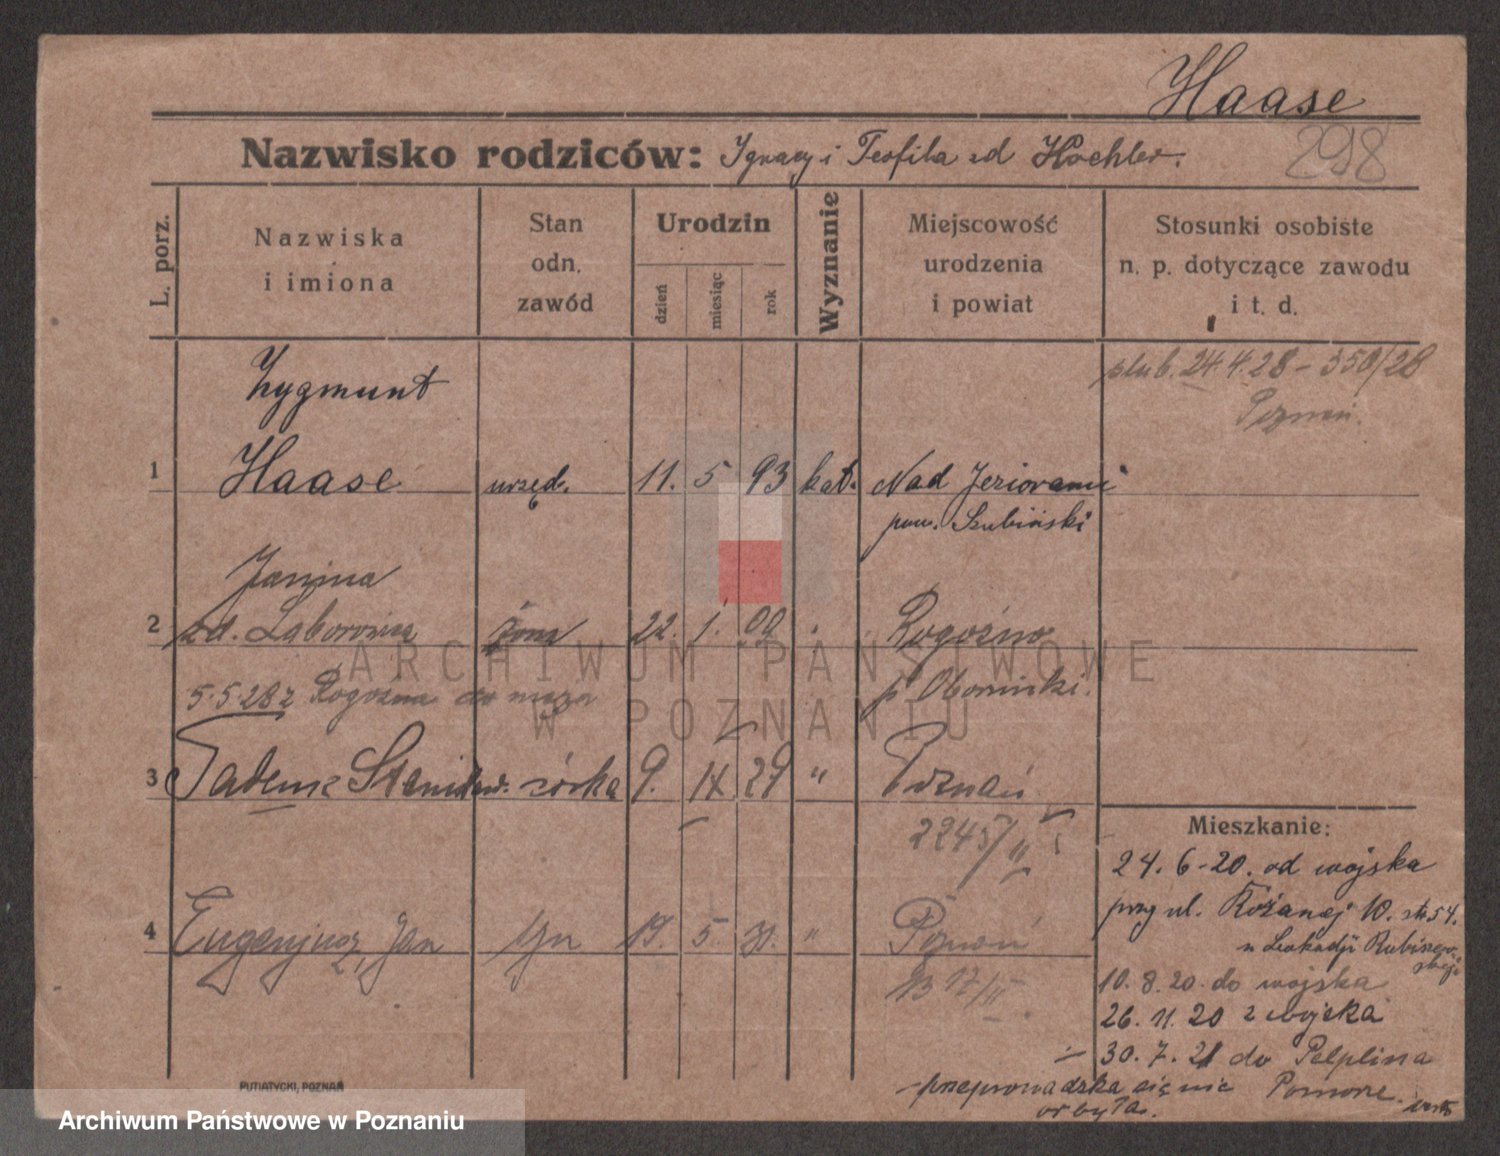 Haase
298
Nazwisko rodziców: Ignacy i Teofila zd Koehler.
L. porz.
Nazwiska
i imiona
Stan
odn.
zawód
Urodzin
dzień
miesiąc
rok
Wyznanie
Miejscowość
urodzenia
i powiat
Stosunki osobiste
n. p. dotyczące zawodu
i t. d.
ślub. 24.4.28 – 350/28
Poznań.
Zygmunt
1 Haase urzęd. 11. 5 93 kat. Nad Jeziorami
pow. Szubiński
Janina
2 zd. żona 22. 1. 00 " Rogoźno
p. Obornicki.
5.5.28 z Rogoźna do męża
3 Stanisław. córka 9. IX 29 " Poznań
2245/II
4 Eugenjusz, Jan syn 19. 5. 31. " Poznań
Mieszkanie:
24. 6-20. od wojska
przy ul. Różanej 10. str. 54.
u Leokadji
10. 8. 20. do wojska
26. 11. 20 z wojska
30. 7. 21 do Pelplina
przeprowadzka się nie Pomorze.
odbyła.
PUTIATYCKI, POZNAŃ
ARCHIWUM PAŃSTWOWE
W POZNANIU
Archiwum Państwowe w Poznaniu